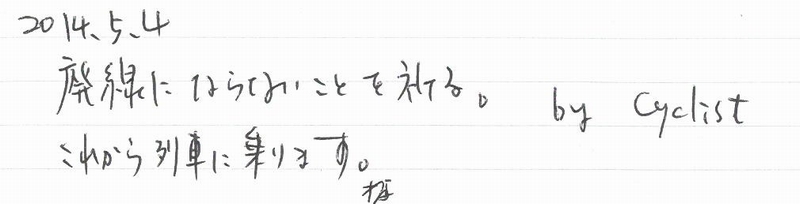 2014、5、4
廃線にならないことを祈る。 by Cyclist
これから列車に乗ります。